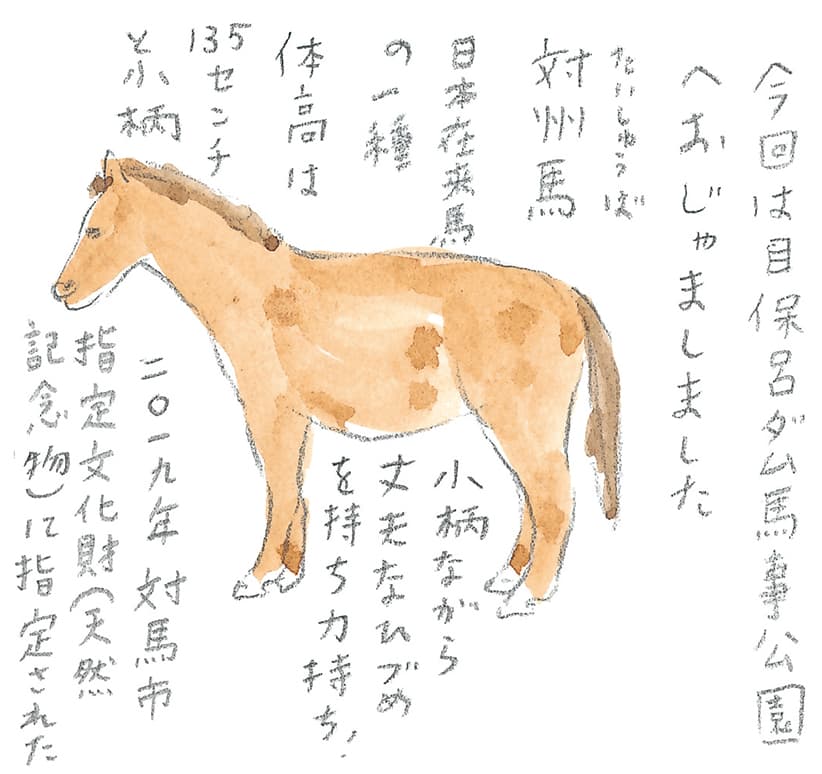 今回は目保呂ダム馬事公園
へおじゃましました
たいしゅうば
対州馬
日本在来馬
の一種
体高は
135センチ
と小柄
小柄ながら
丈夫なひづめ
を持ち力持ち!
二〇一九年 対馬市
指定文化財(天然
記念物)に指定された